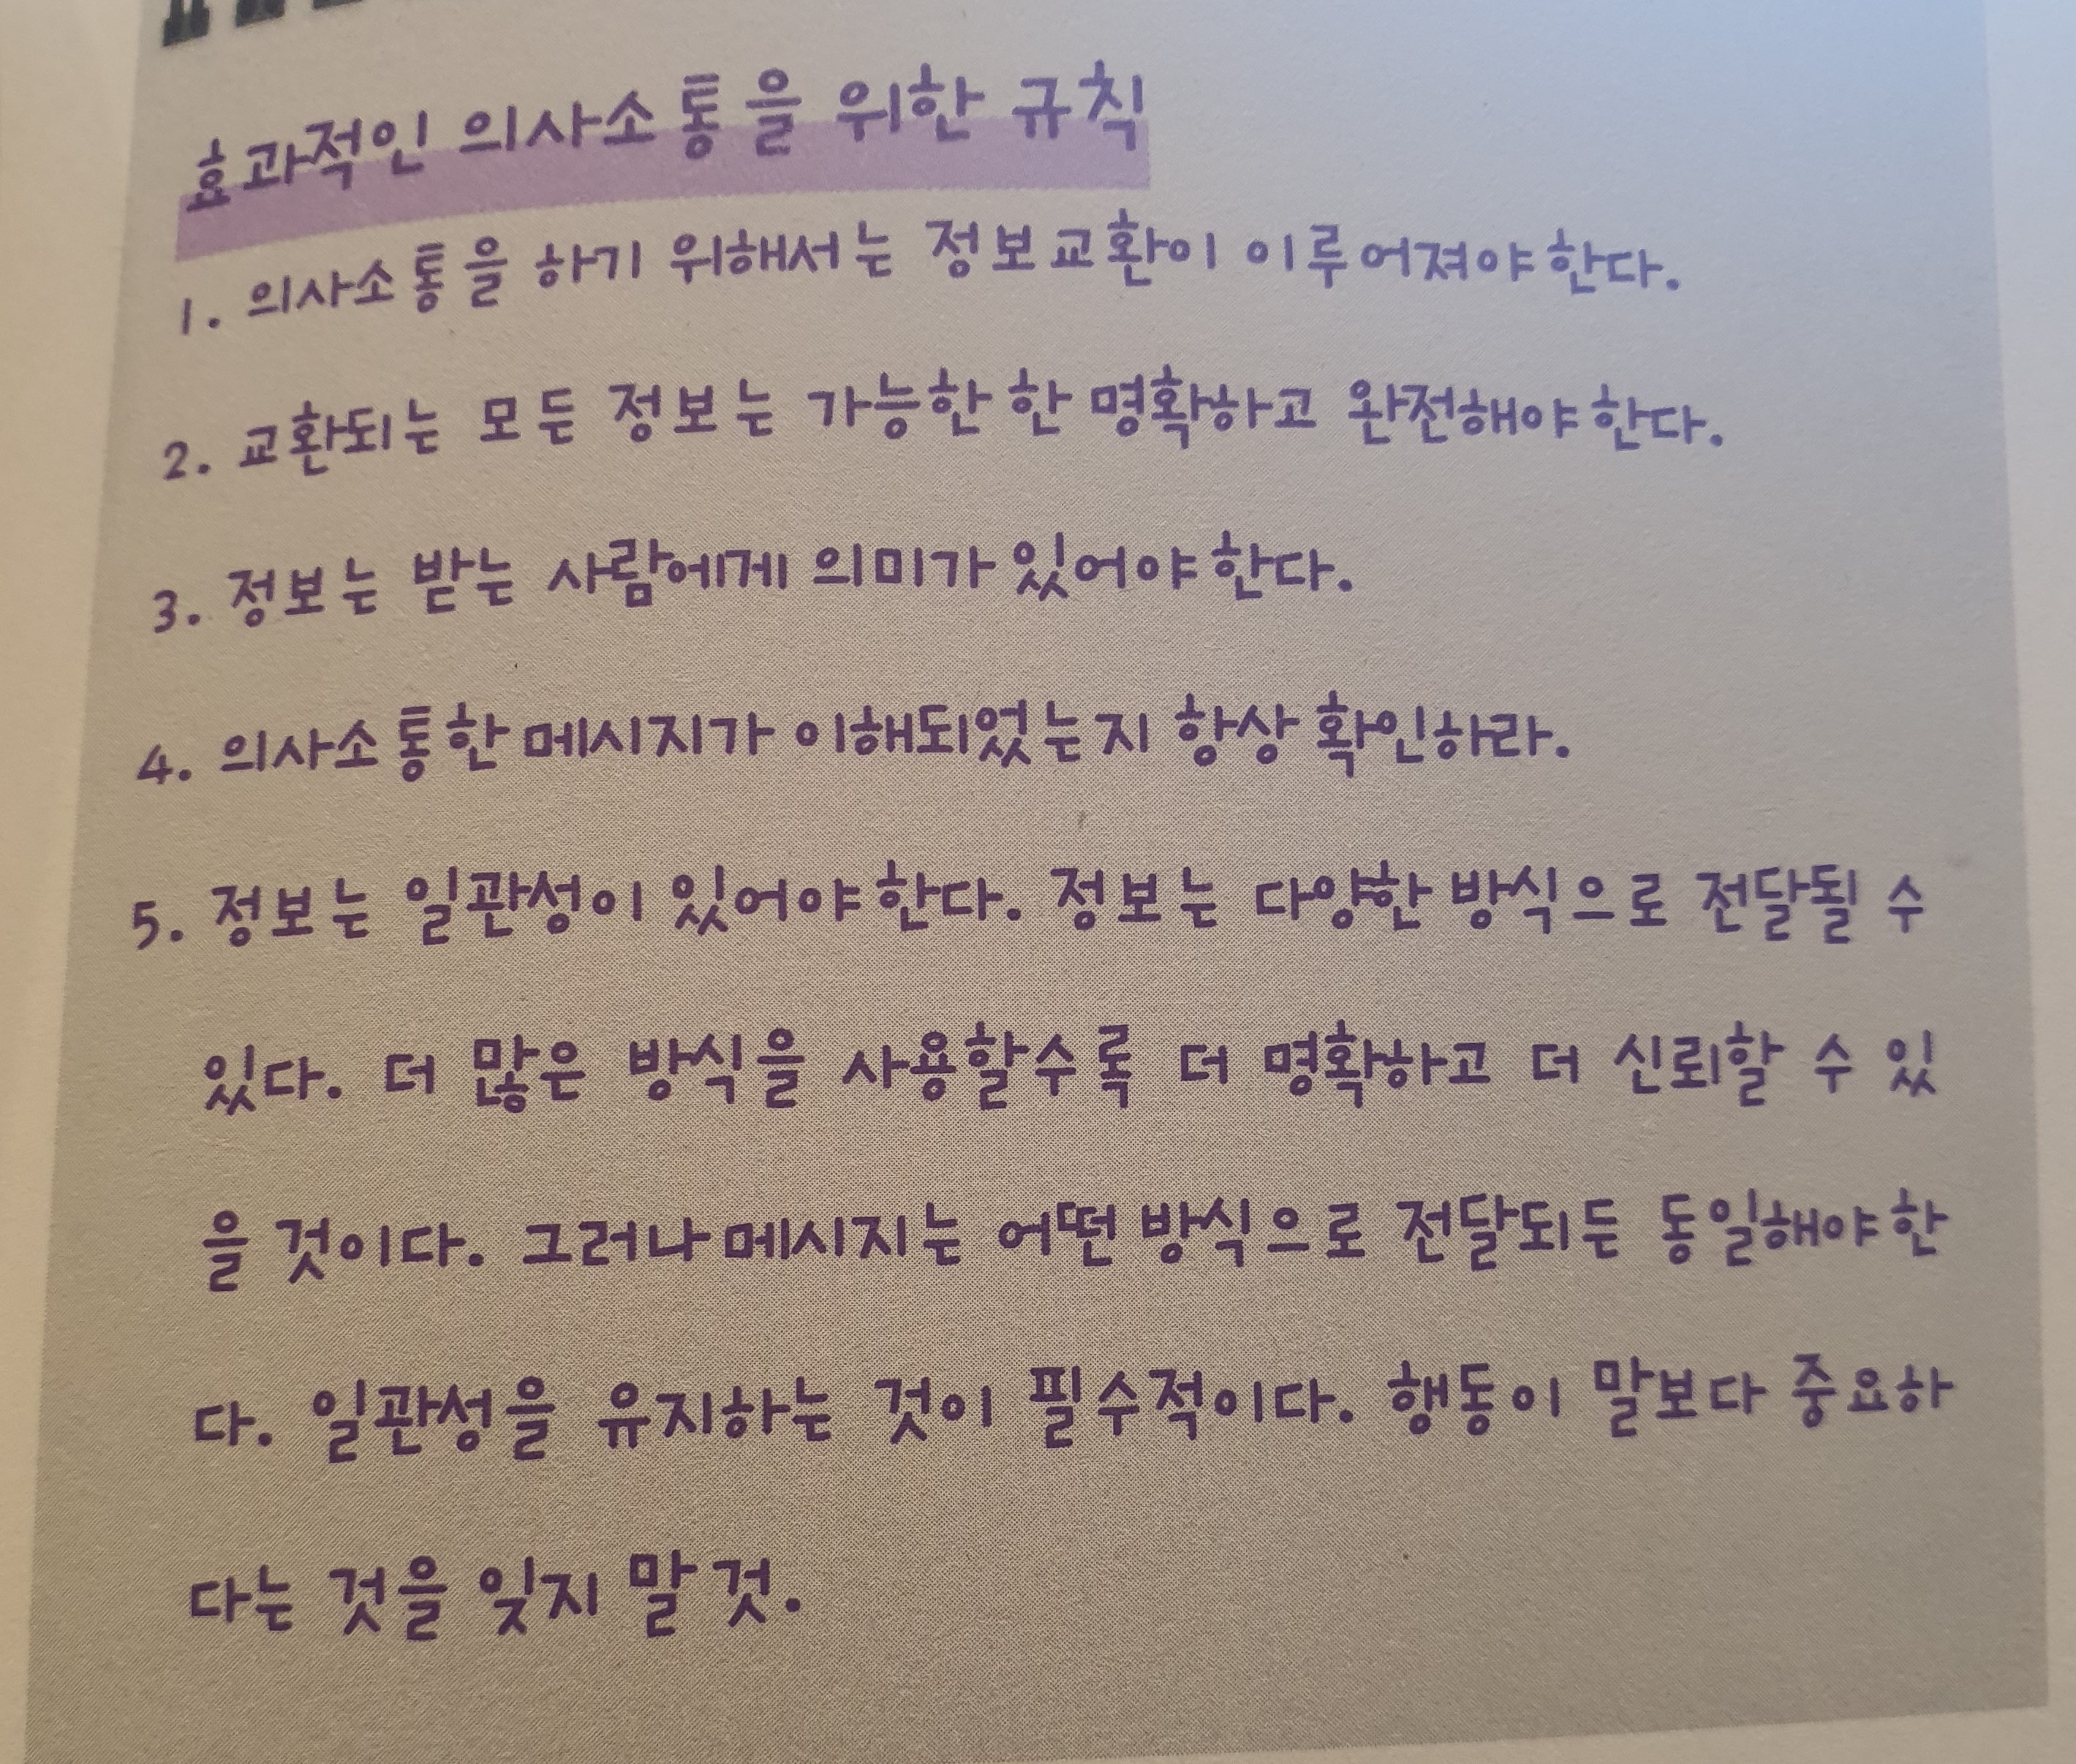 효과적인 의사소통을 위한 규칙
1. 의사소통을 하기 위해서는 정보교환이 이루어져야한다.
2. 교환되는 모든 정보는 가능한 한 명확하고 완전해야한다.
3. 정보는 받는 사람에게 의미가 있어야한다.
4. 의사소통한 메시지가 이해되었는지 항상 확인하라.
5. 정보는 일관성이 있어야한다. 정보는 다양한 방식으로 전달될 수
있다. 더 많은 방식을 사용할수록 더 명확하고 더 신뢰할 수 있
을 것이다. 그러나 메시지는 어떤 방식으로 전달되든 동일해야한
다. 일관성을 유지하는 것이 필수적이다. 행동이 말보다 중요하
다는 것을 잊지 말 것.